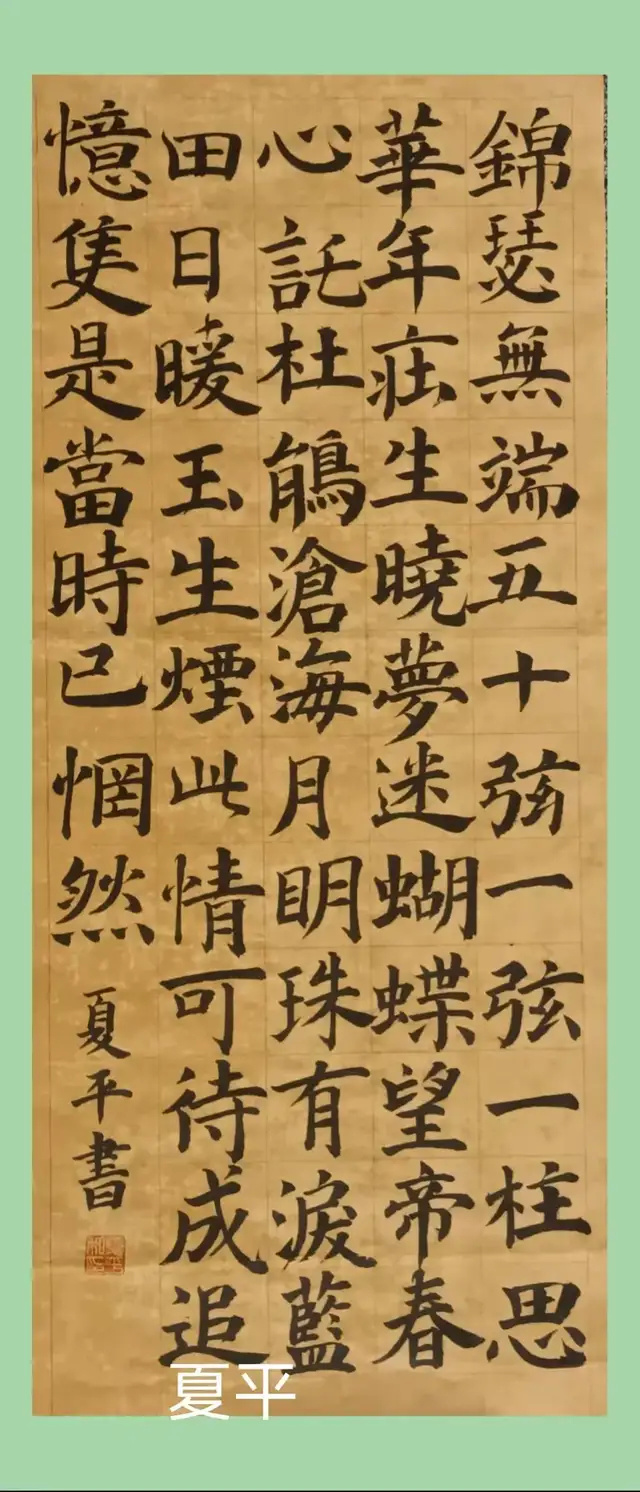 錦瑟無端五十弦一弦一柱思
華年庄生曉夢迷蝴蝶望帝春
心託杜鵑滄海月明珠有淚藍
田日暖玉生煙此情可待成追
憶隻是當時已惘然
夏平書
夏平